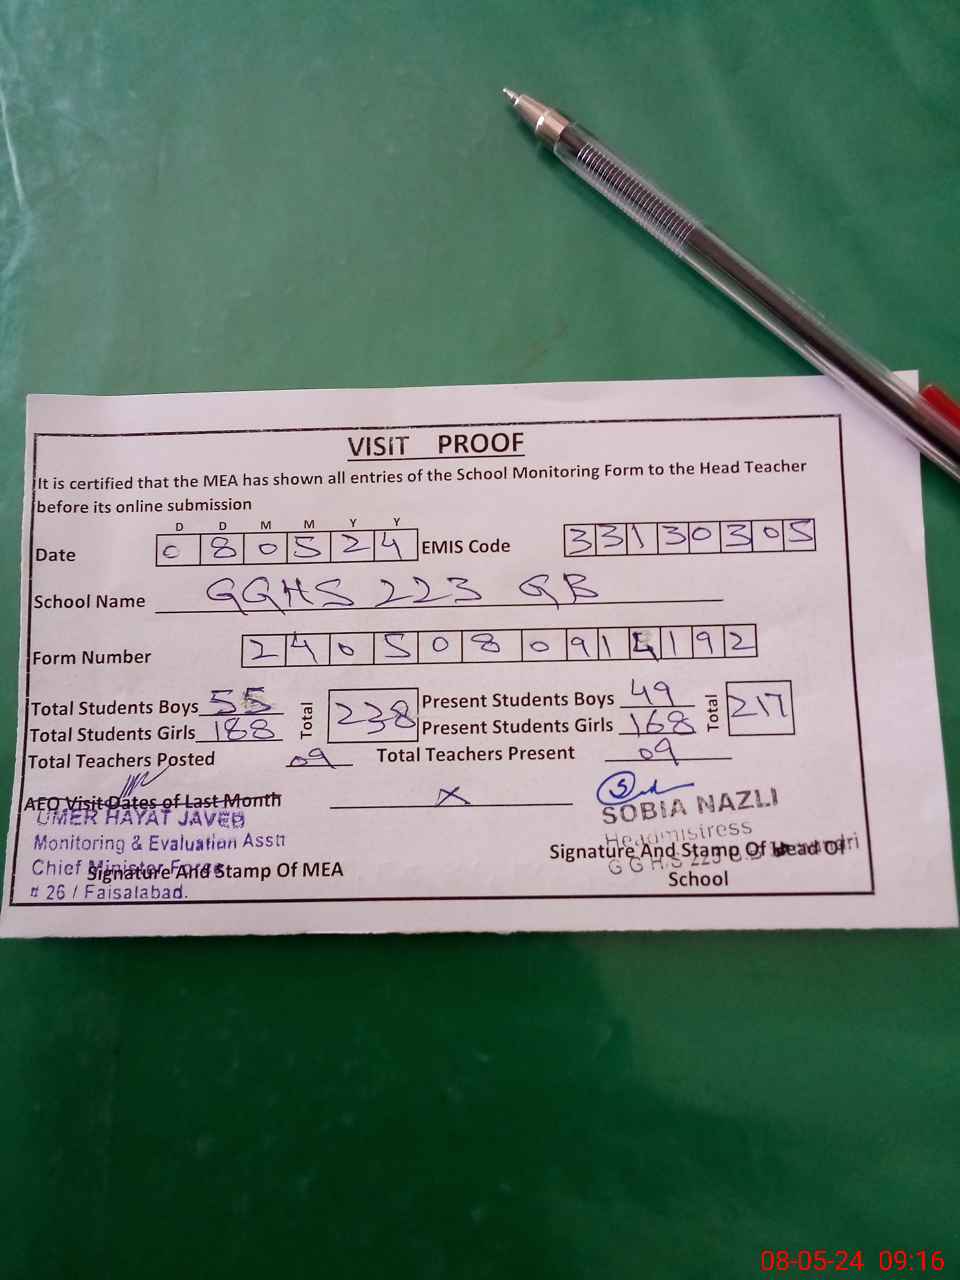 VISIT PROOF
It is certified that the MEA has shown all entries of the School Monitoring Form to the Head Teacher
before its online submission
D D M M Y Y
Date 0 8 0 5 2 4 EMIS Code 3 3 1 3 0 3 0 5
School Name GGHS 223 GB
Form Number 2 4 0 5 0 8 0 9 1 4 1 9 2
Total Students Boys 55 Total 238 Present Students Boys 49 Total 217
Total Students Girls 188 Present Students Girls 168
Total Teachers Posted 09 Total Teachers Present 09
AEO Visit Dates of Last Month X
UMER HAYAT JAVED
Monitoring & Evaluation Asstt
Chief Minister Force
# 26 / Faisalabad.
Signature And Stamp Of MEA
SOBIA NAZLI
Headmistress
G G H.S 223
Signature And Stamp Of Head Of
School
08-05-24 09:16